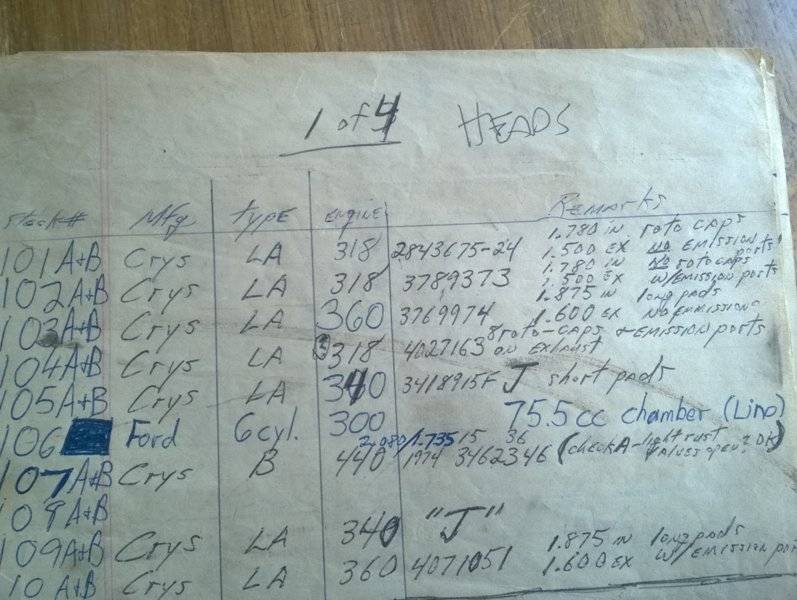 1 of 4 HEADS
Stock# Mfg TYPE ENGINE REMARKS
101 A+B Crys LA 318 2843675-24 1.780 IN ROTO CAPS
1.500 EX NO EMISSION PORTS
102 A+B Crys LA 318 3789373 1.780 IN NO ROTOCAPS
1.500 EX W/EMISSION PORTS
103 A+B Crys LA 360 3769974 1.875 IN long pads
1.600 EX NO EMMISIONS
104 A+B Crys LA 318 4027163 8 roto-CAPS + EMISSION PORTS
ON EXHAUST
105 A+B Crys LA 340 3418915F J short pads
106 Ford 6cyl. 300 75.5cc chamber (Lino)
107 A+B Crys B 440 2.080/1.735 15 36
1974 3462346 (check A-light rust
VALVES open? OK)
108 A+B
109 A+B Crys LA 340 "J"
10 A+B Crys LA 360 4071051 1.875 IN long pads
1.600 EX W/EMISSION PORTS